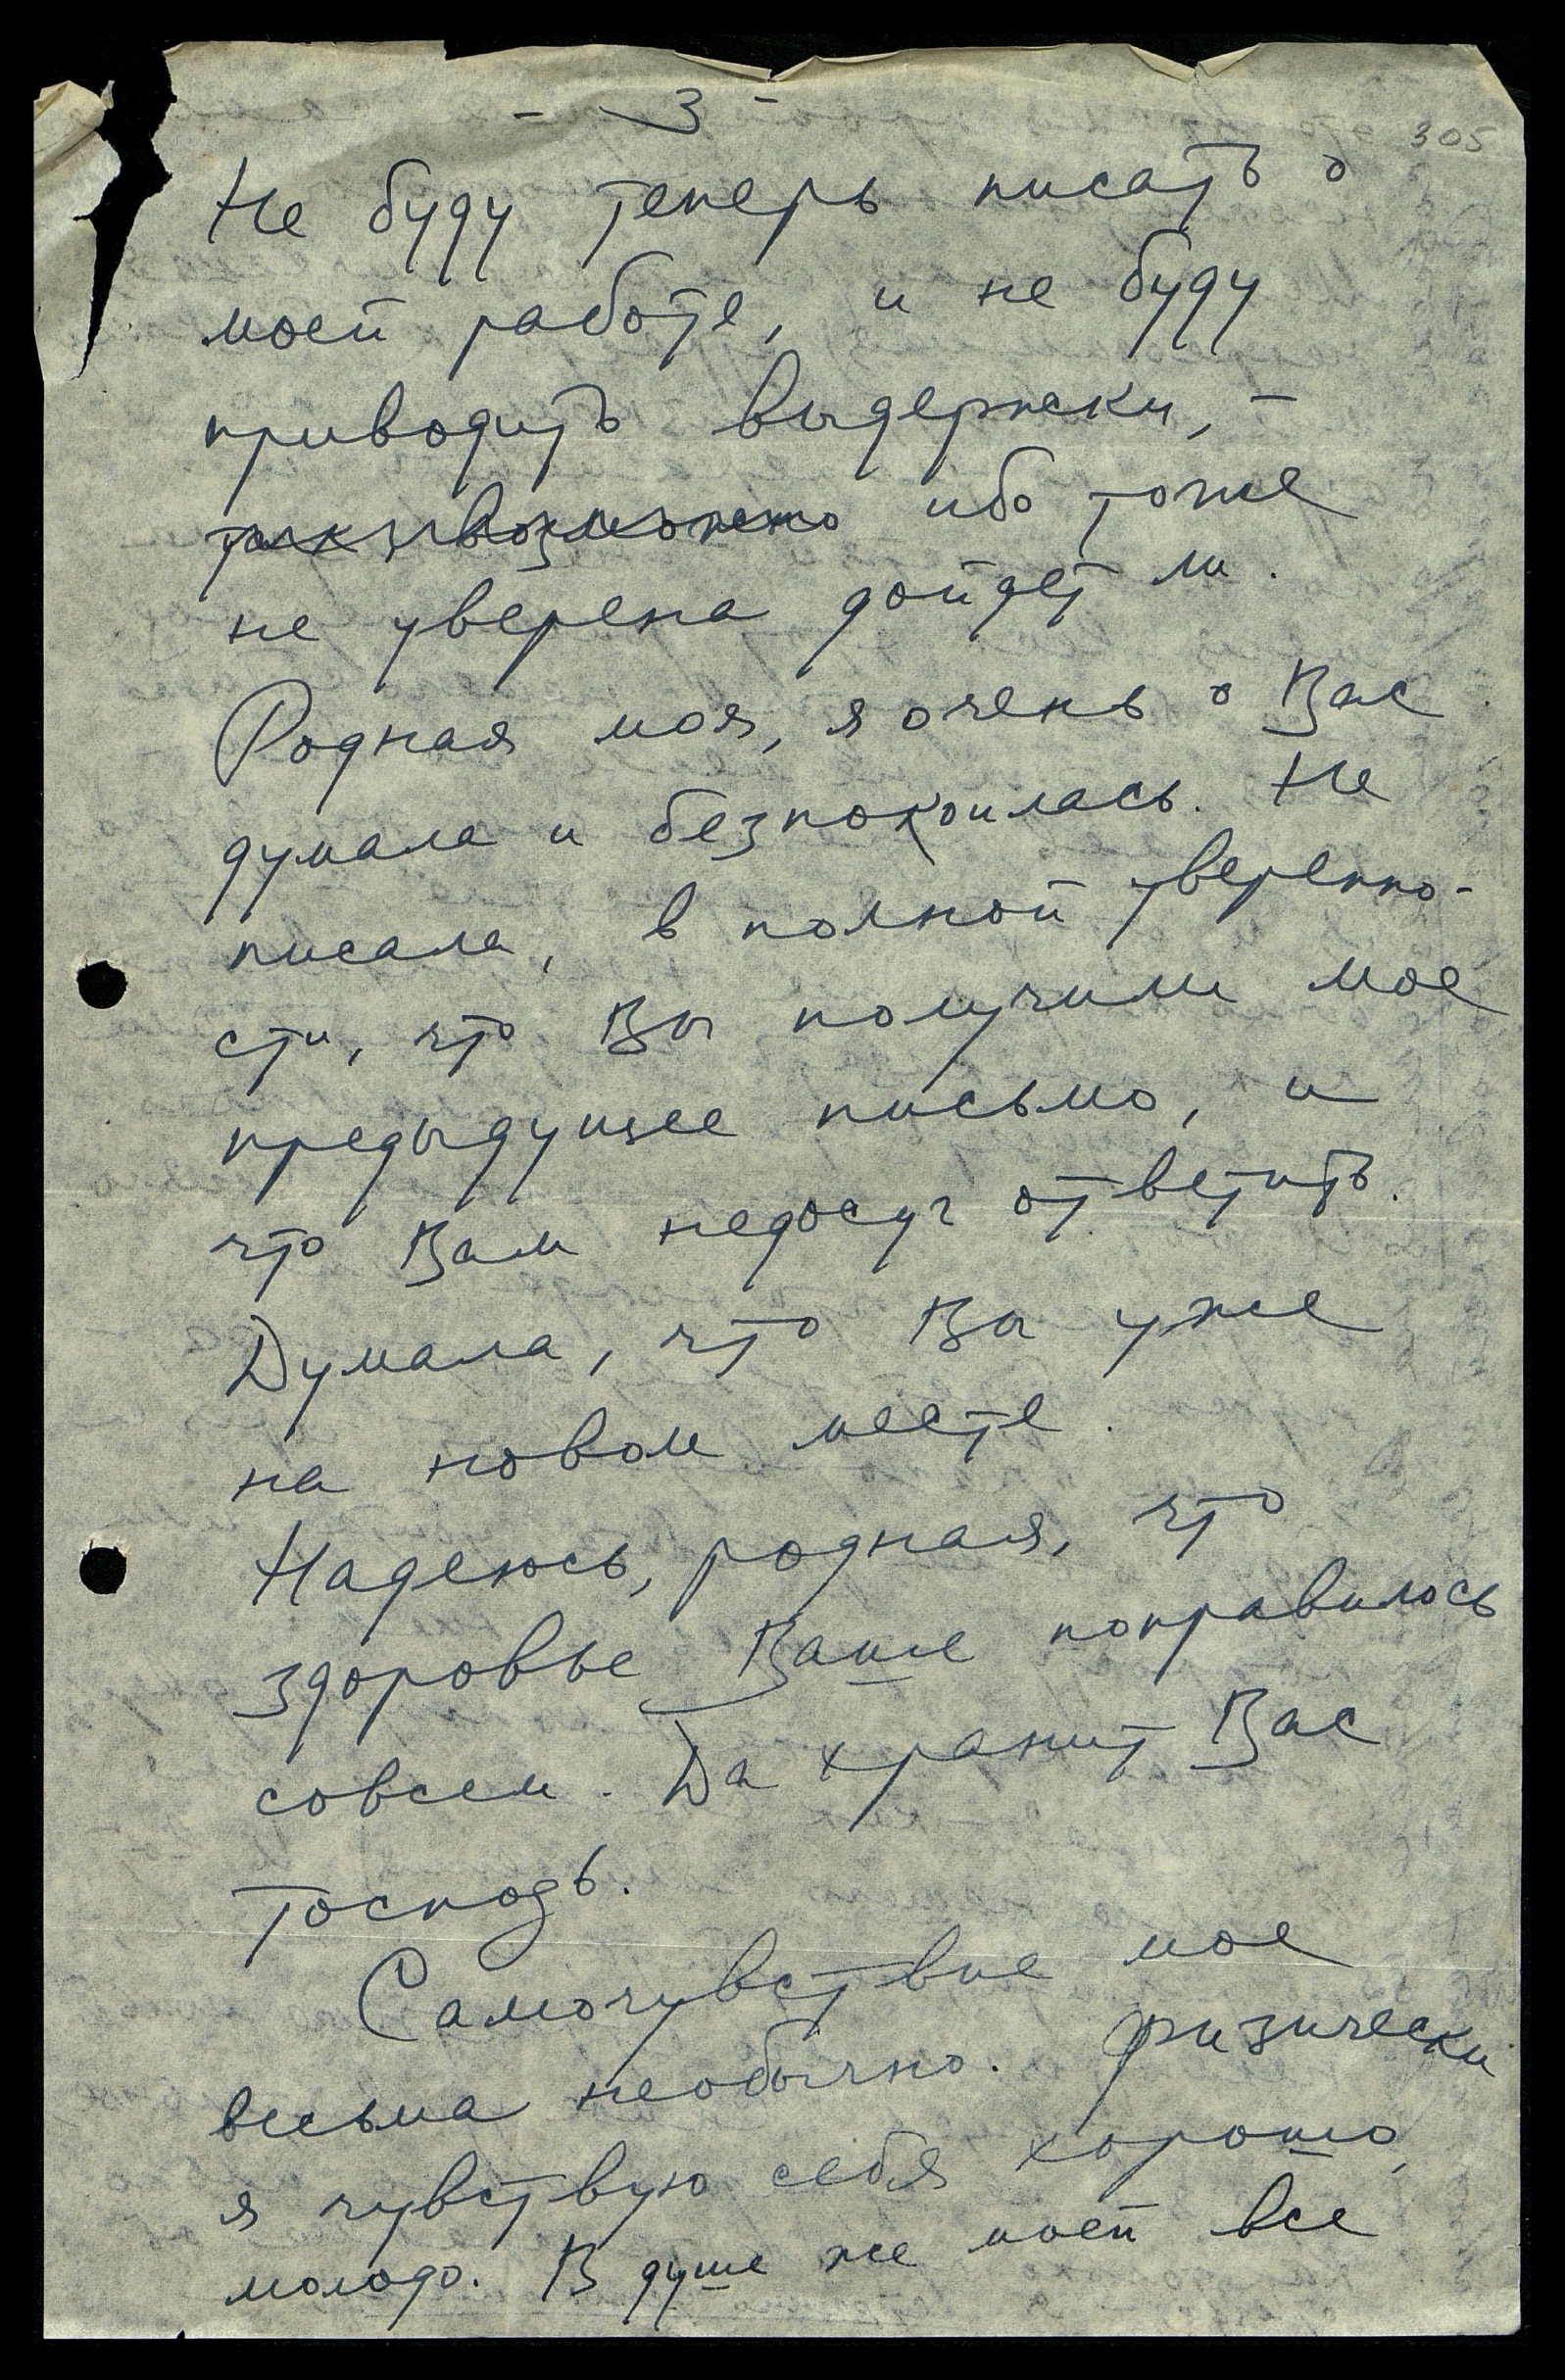 - 3 -
305
Не буду теперь писать о
моей работе, и не буду
приводить выдержки, –
ибо тоже
не уверена дойдет ли.
Родная моя, я очень о Вас
думала и безпокоилась. Не
писала, в полной уверенно-
сти, что Вы получили мое
предыдущее письмо, и
что Вам недосуг ответить.
Думала, что Вы уже
на новом месте.
Надеюсь, родная, что
здоровье Ваше поправилось
совсем. Да хранит Вас
Господь.
Самочувствие мое
весьма необычно. Физически
я чувствую себя хорошо,
молодо. В душе же моей все